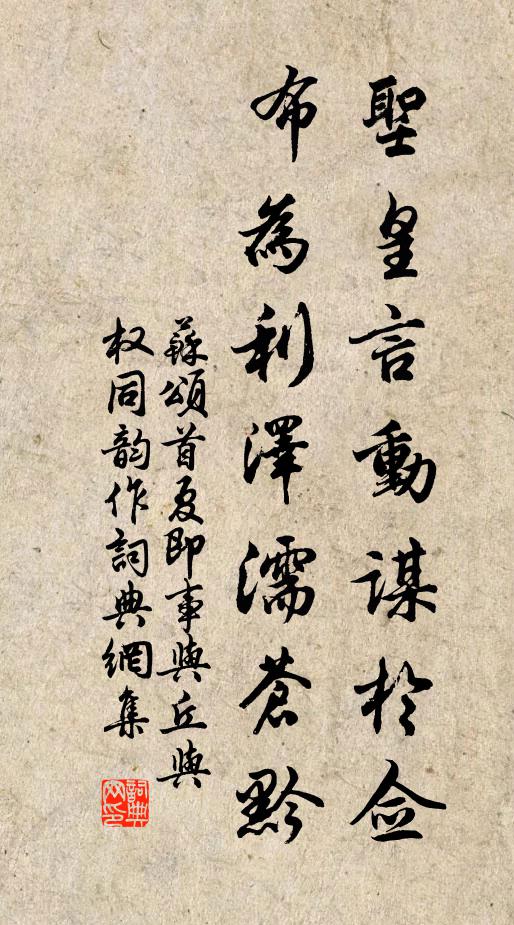 聖皇言動謀於僉
布為利澤濡蒼黔
蘇頌首夏即事與丘與
权同韵作詞典網集
詞典网印